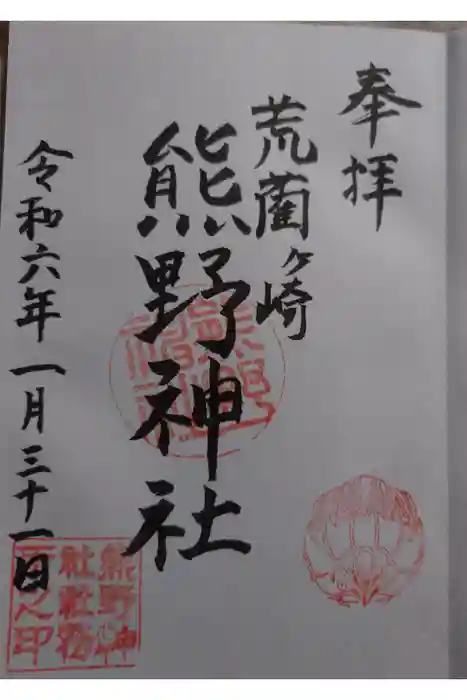 奉拝
荒藺ヶ崎
熊野神社
令和六年一月三十一日
熊野神
社社務
之印